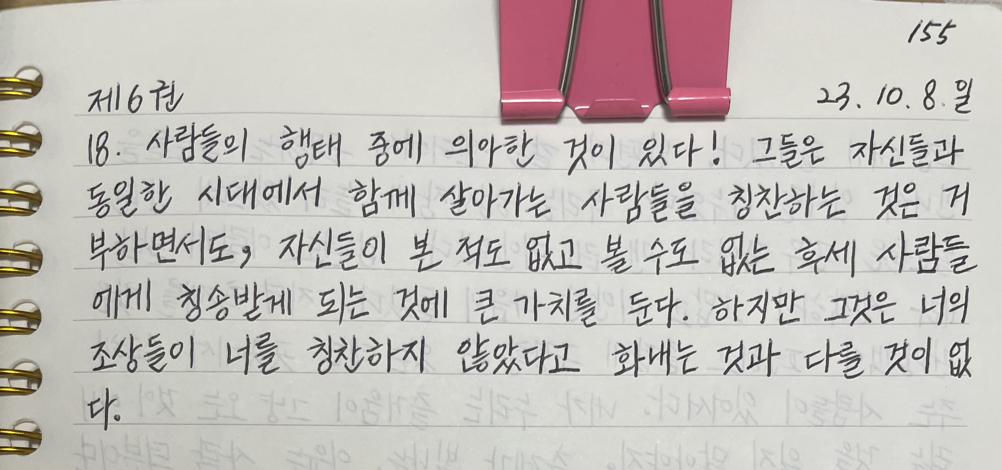 155
제6권 23. 10. 8. 일
18. 사람들의 행태 중에 의아한 것이 있다! 그들은 자신들과
동일한 시대에서 함께 살아가는 사람들을 칭찬하는 것은 거
부하면서도, 자신들이 본 적도 없고 볼 수도 없는 후세 사람들
에게 칭송받게 되는 것에 큰 가치를 둔다. 하지만 그것은 너의
조상들이 너를 칭찬하지 않았다고 화내는 것과 다를 것이 없
다.